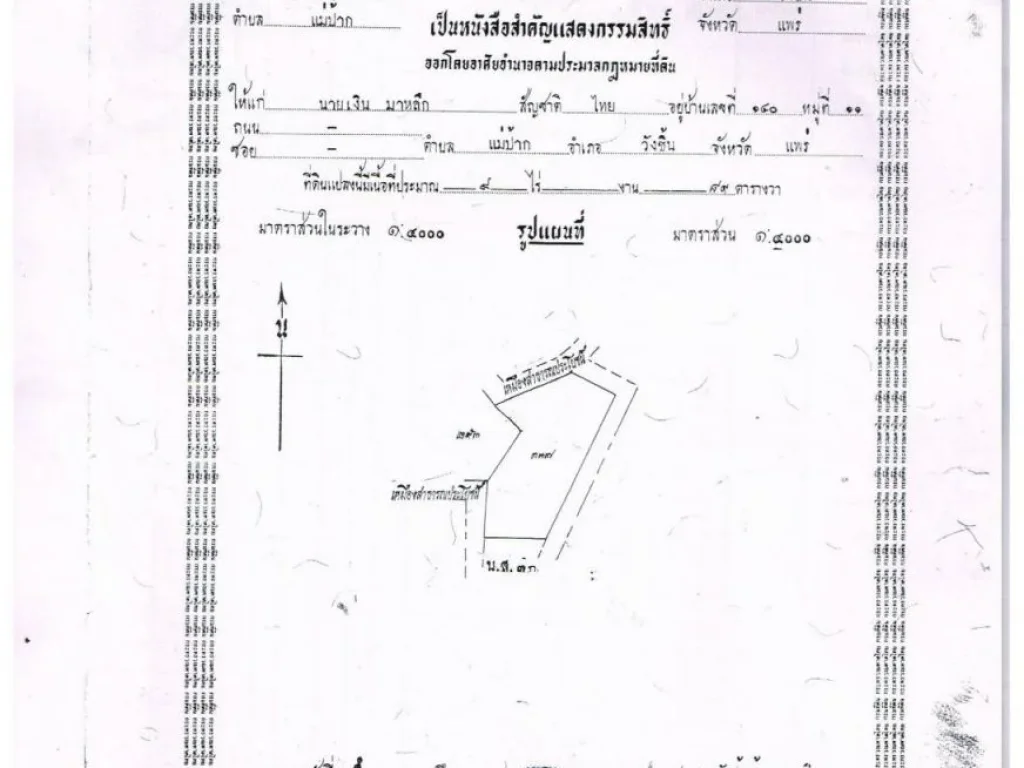 ตำบล แม่ป้าก เป็นหนังสือสำคัญแสดงกรรมสิทธิ์ จังหวัด แพร่
ออกโดยอาศัยอำนาจตามประมวลกฎหมายที่ดิน
ให้แก่ นายเงิน มาหลึก สัญชาติ ไทย อยู่บ้านเลขที่ ๑๔๐ หมู่ที่ ๑๑
ถนน –
ซอย – ตำบล แม่ป้าก อำเภอ วังชิ้น จังหวัด แพร่
ที่ดินแปลงนี้มีเนื้อที่ประมาณ ๙ ไร่ งาน ๙๙ ตารางวา
มาตราส่วนในระวาง ๑:๔๐๐๐ รูปแผนที่ มาตราส่วน ๑:๔๐๐๐
น
เหมืองสาธารณประโยชน์
๓๓๗
เหมืองสาธารณประโยชน์
น.ส. ๓ก